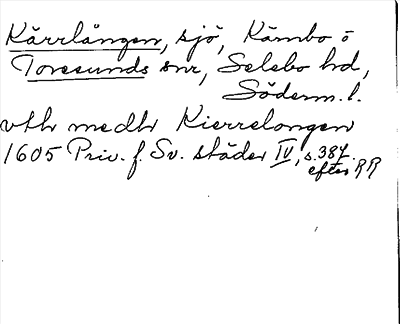 Kärrlången, sjö, Kärnbo o
Toresunds snr, Selebo hd,
Söderm. l.
vth medh Kierrelongen
1605 Priv. f. Sv. städer IV, s. 387.
efter RR